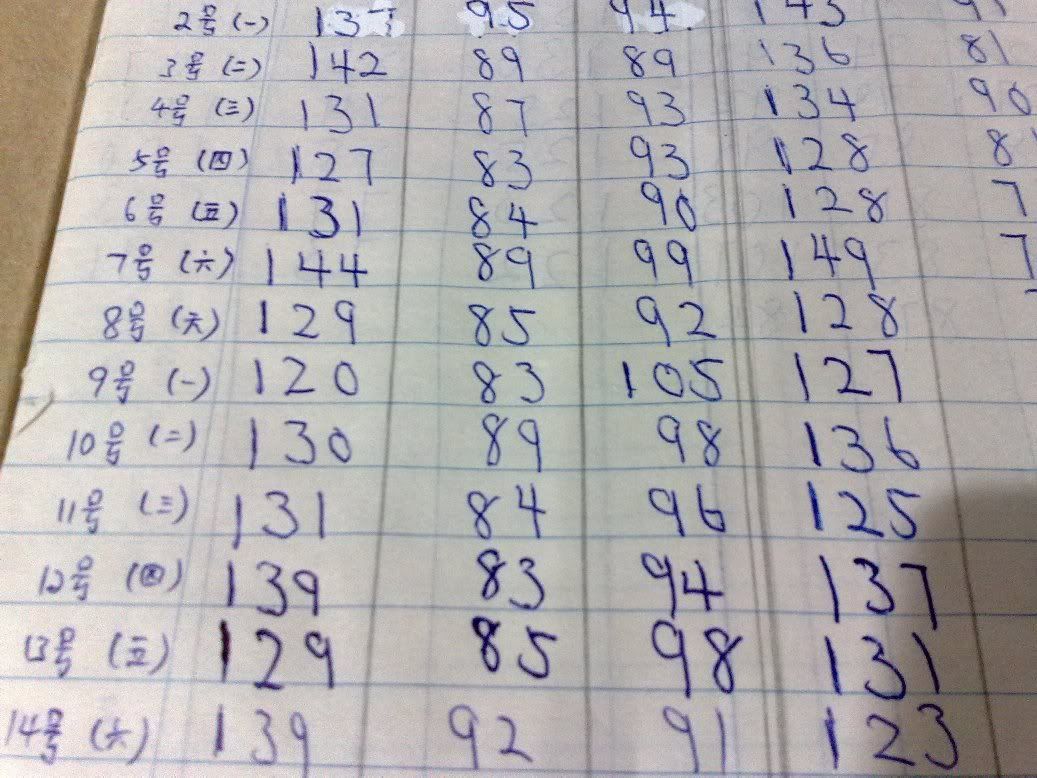 2号 (一) 137 95 94 143
3号 (二) 142 89 89 136 81
4号 (三) 131 87 93 134 90
5号 (四) 127 83 93 128 8
6号 (五) 131 84 90 128 7
7号 (六) 144 89 99 149 7
8号 (天) 129 85 92 128
9号 (一) 120 83 105 127
10号 (二) 130 89 98 136
11号 (三) 131 84 96 125
12号 (四) 139 83 94 137
13号 (五) 129 85 98 131
14号 (六) 139 92 91 123